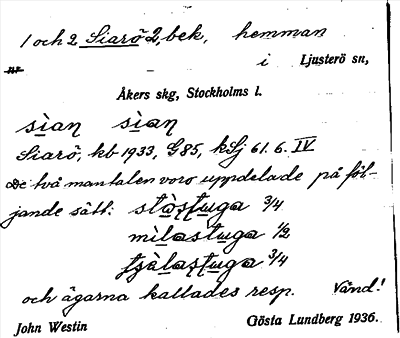 1 och 2 Siarö 2, bek, hemman
nr i Ljusterö sn,
Åkers skg, Stockholms l.
sìaṇ sìaṇ
Siarö, hb 1933, G85, kSj 61. 6. IV
De två mantalen voro uppdelade på föl-
jande sätt: stòṣṭuga 3/4
mìlastuga 1/2
och ägarna kallades resp. Vänd!
John Westin Gösta Lundberg 1936.